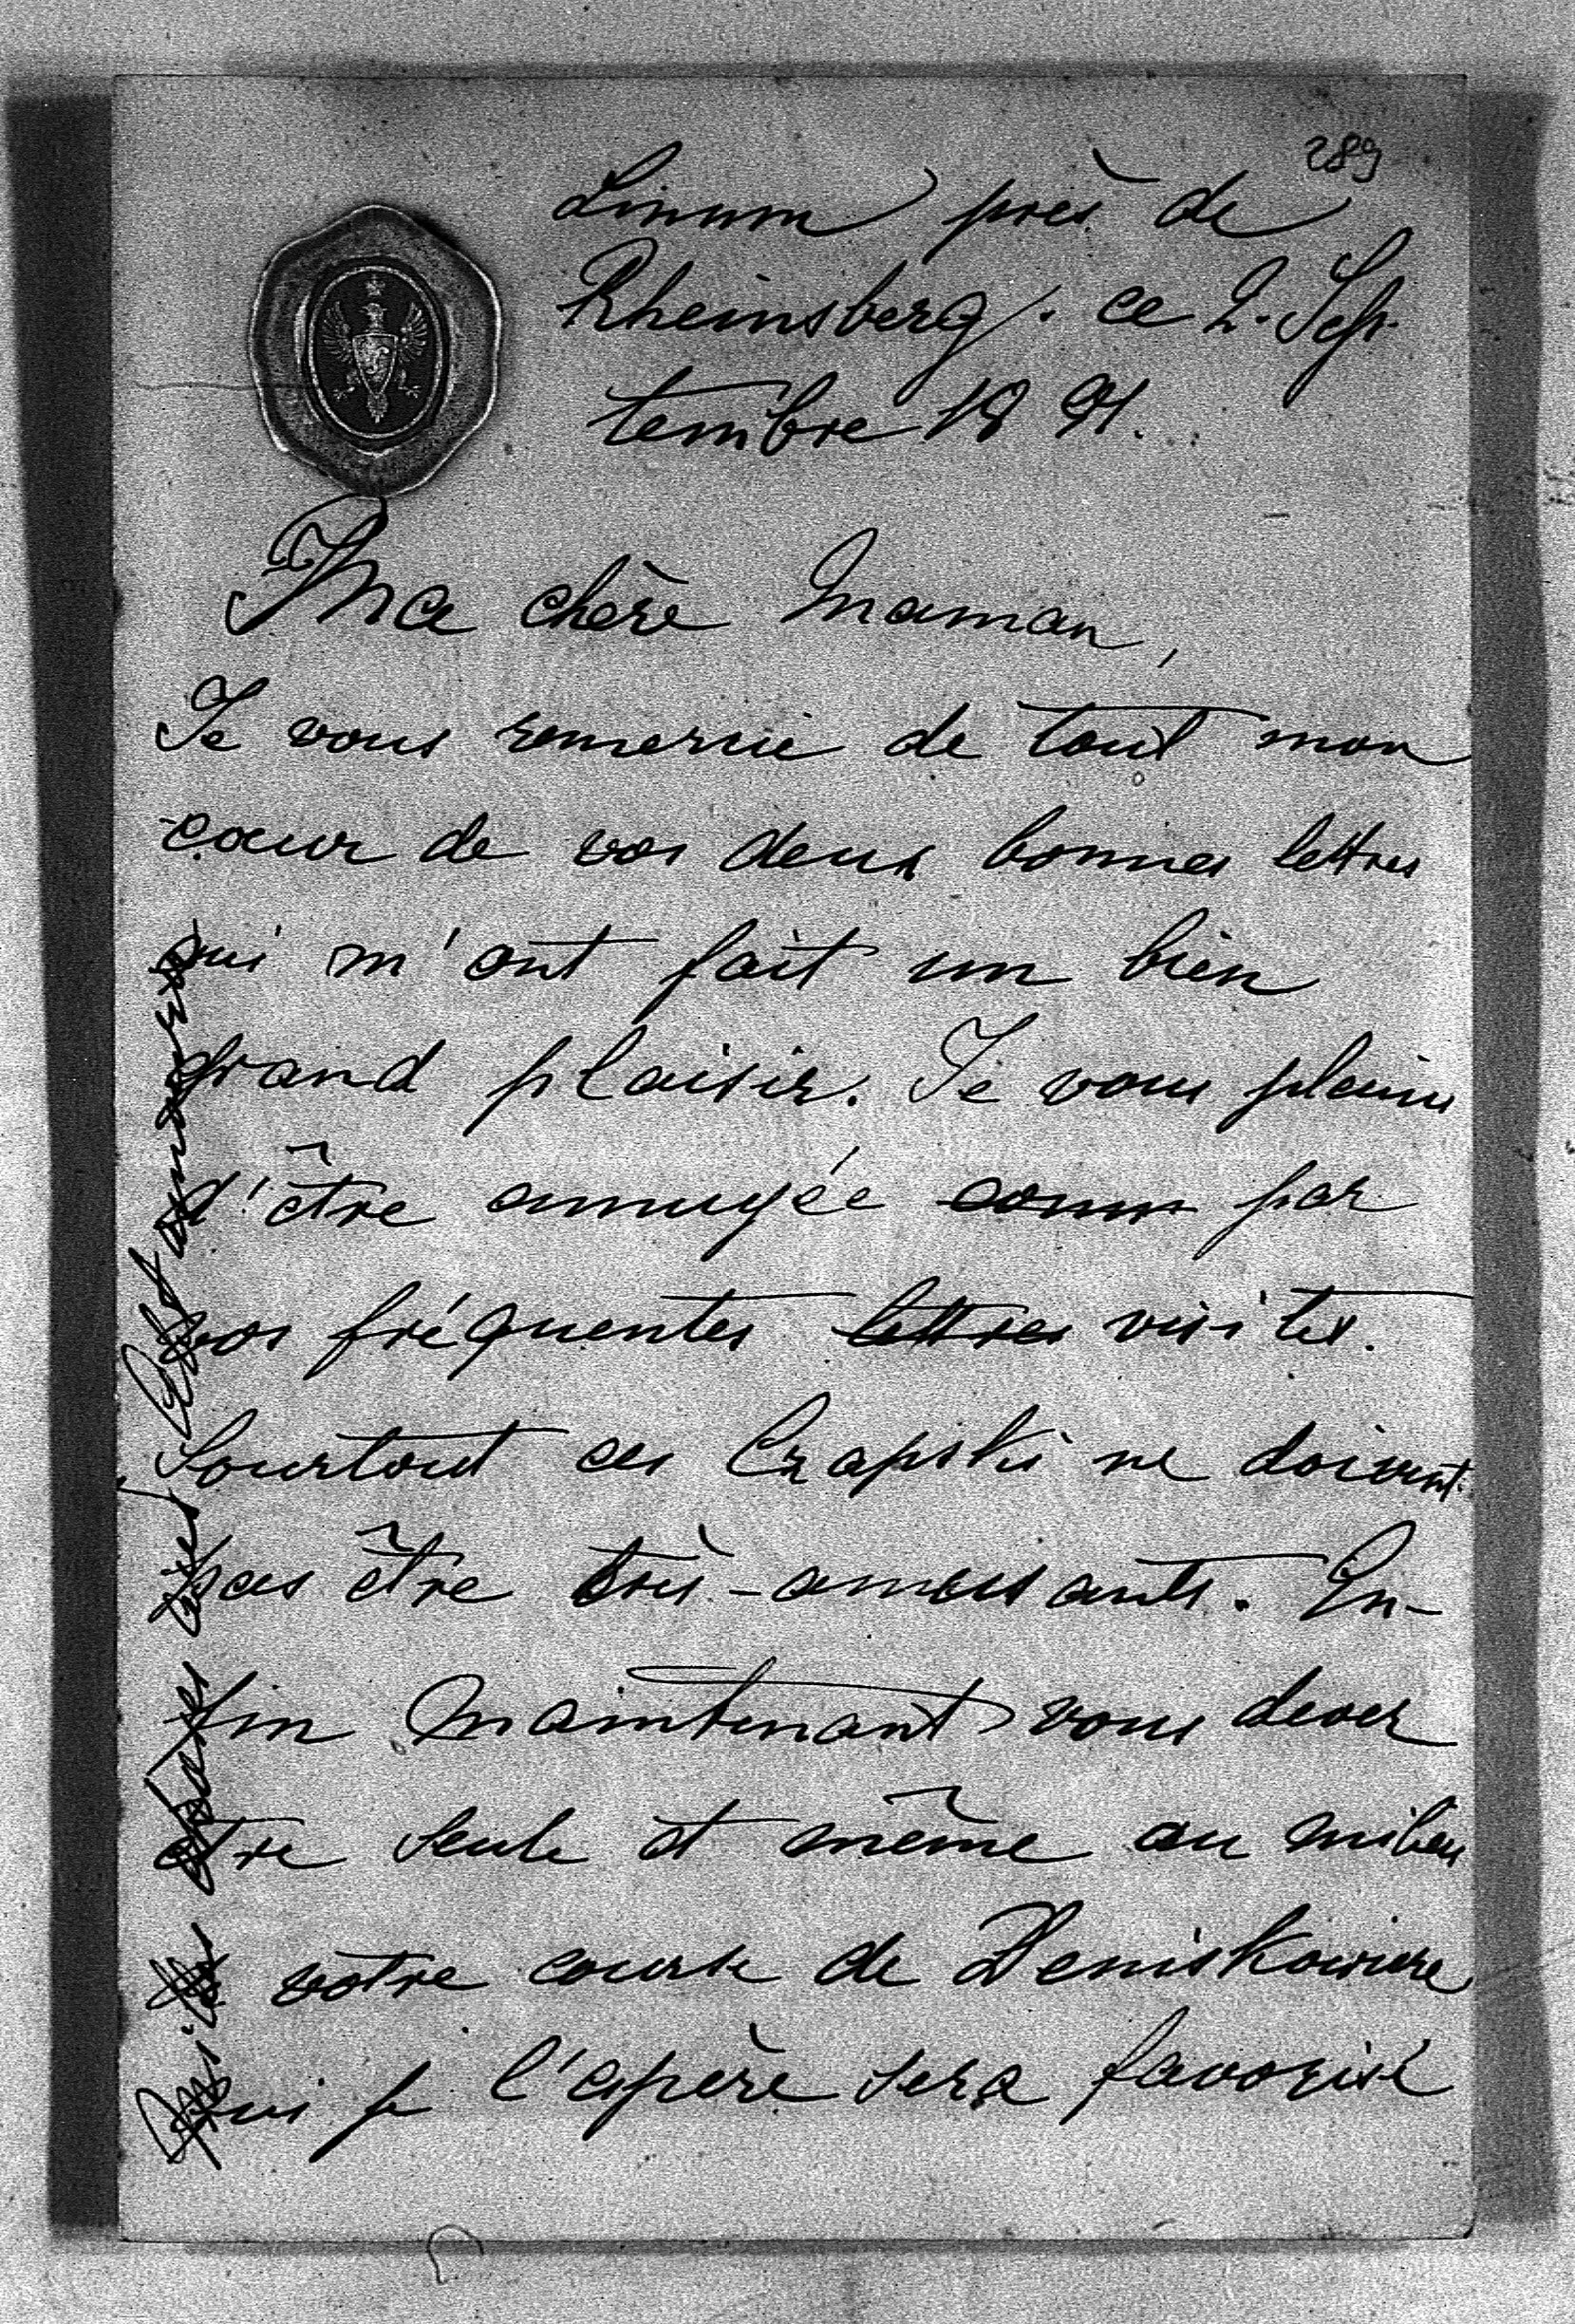 289
Linum près de
Rheinsberg. ce 2. Sep-
tembre 1891.
Ma chère Maman,
Je vous remercie de tout mon
cœur de vos deux bonnes lettres
qui m'ont fait un bien
grand plaisir. Je vous plains
d'être ennuyée comm par
vos fréquentes lettres visites.
Sourtout ces Czapski ne doivent
pas être très-amusants. En-
fin maintenant vous devez
être seule et même au milieu
votre course de Deniskowicze
qui je l'espère sera favorisé